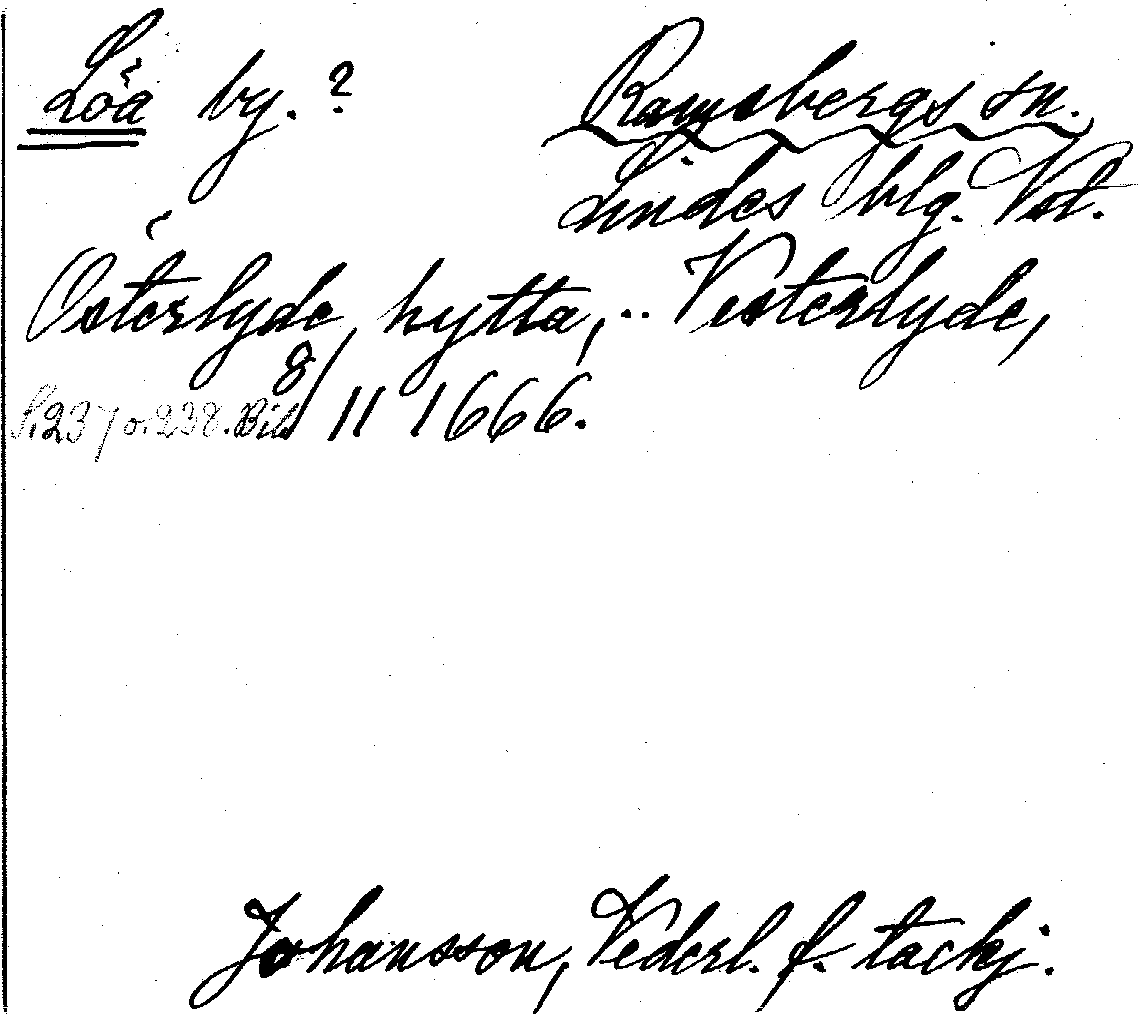 Löa by.? Ramsbergs sn.
Lindes blg. Vstl.
Österlyde, hytta, .. Vesterlyde,
S.237 o. 238. Bil. 8/11 1666.
Johansson, Vederl. f. tackj.